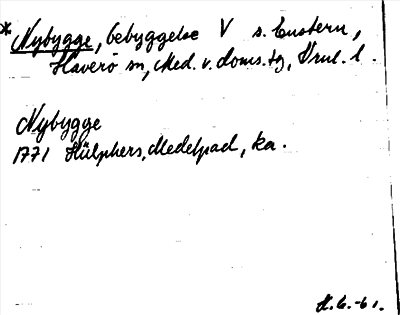 * Nybygge, bebyggelse V s. Custern,
Haverö sn, Med. v. doms. tg, Vrnl. l.
Nybygge
1771 Hülphers, Medelpad, ka.
H.G. -61.